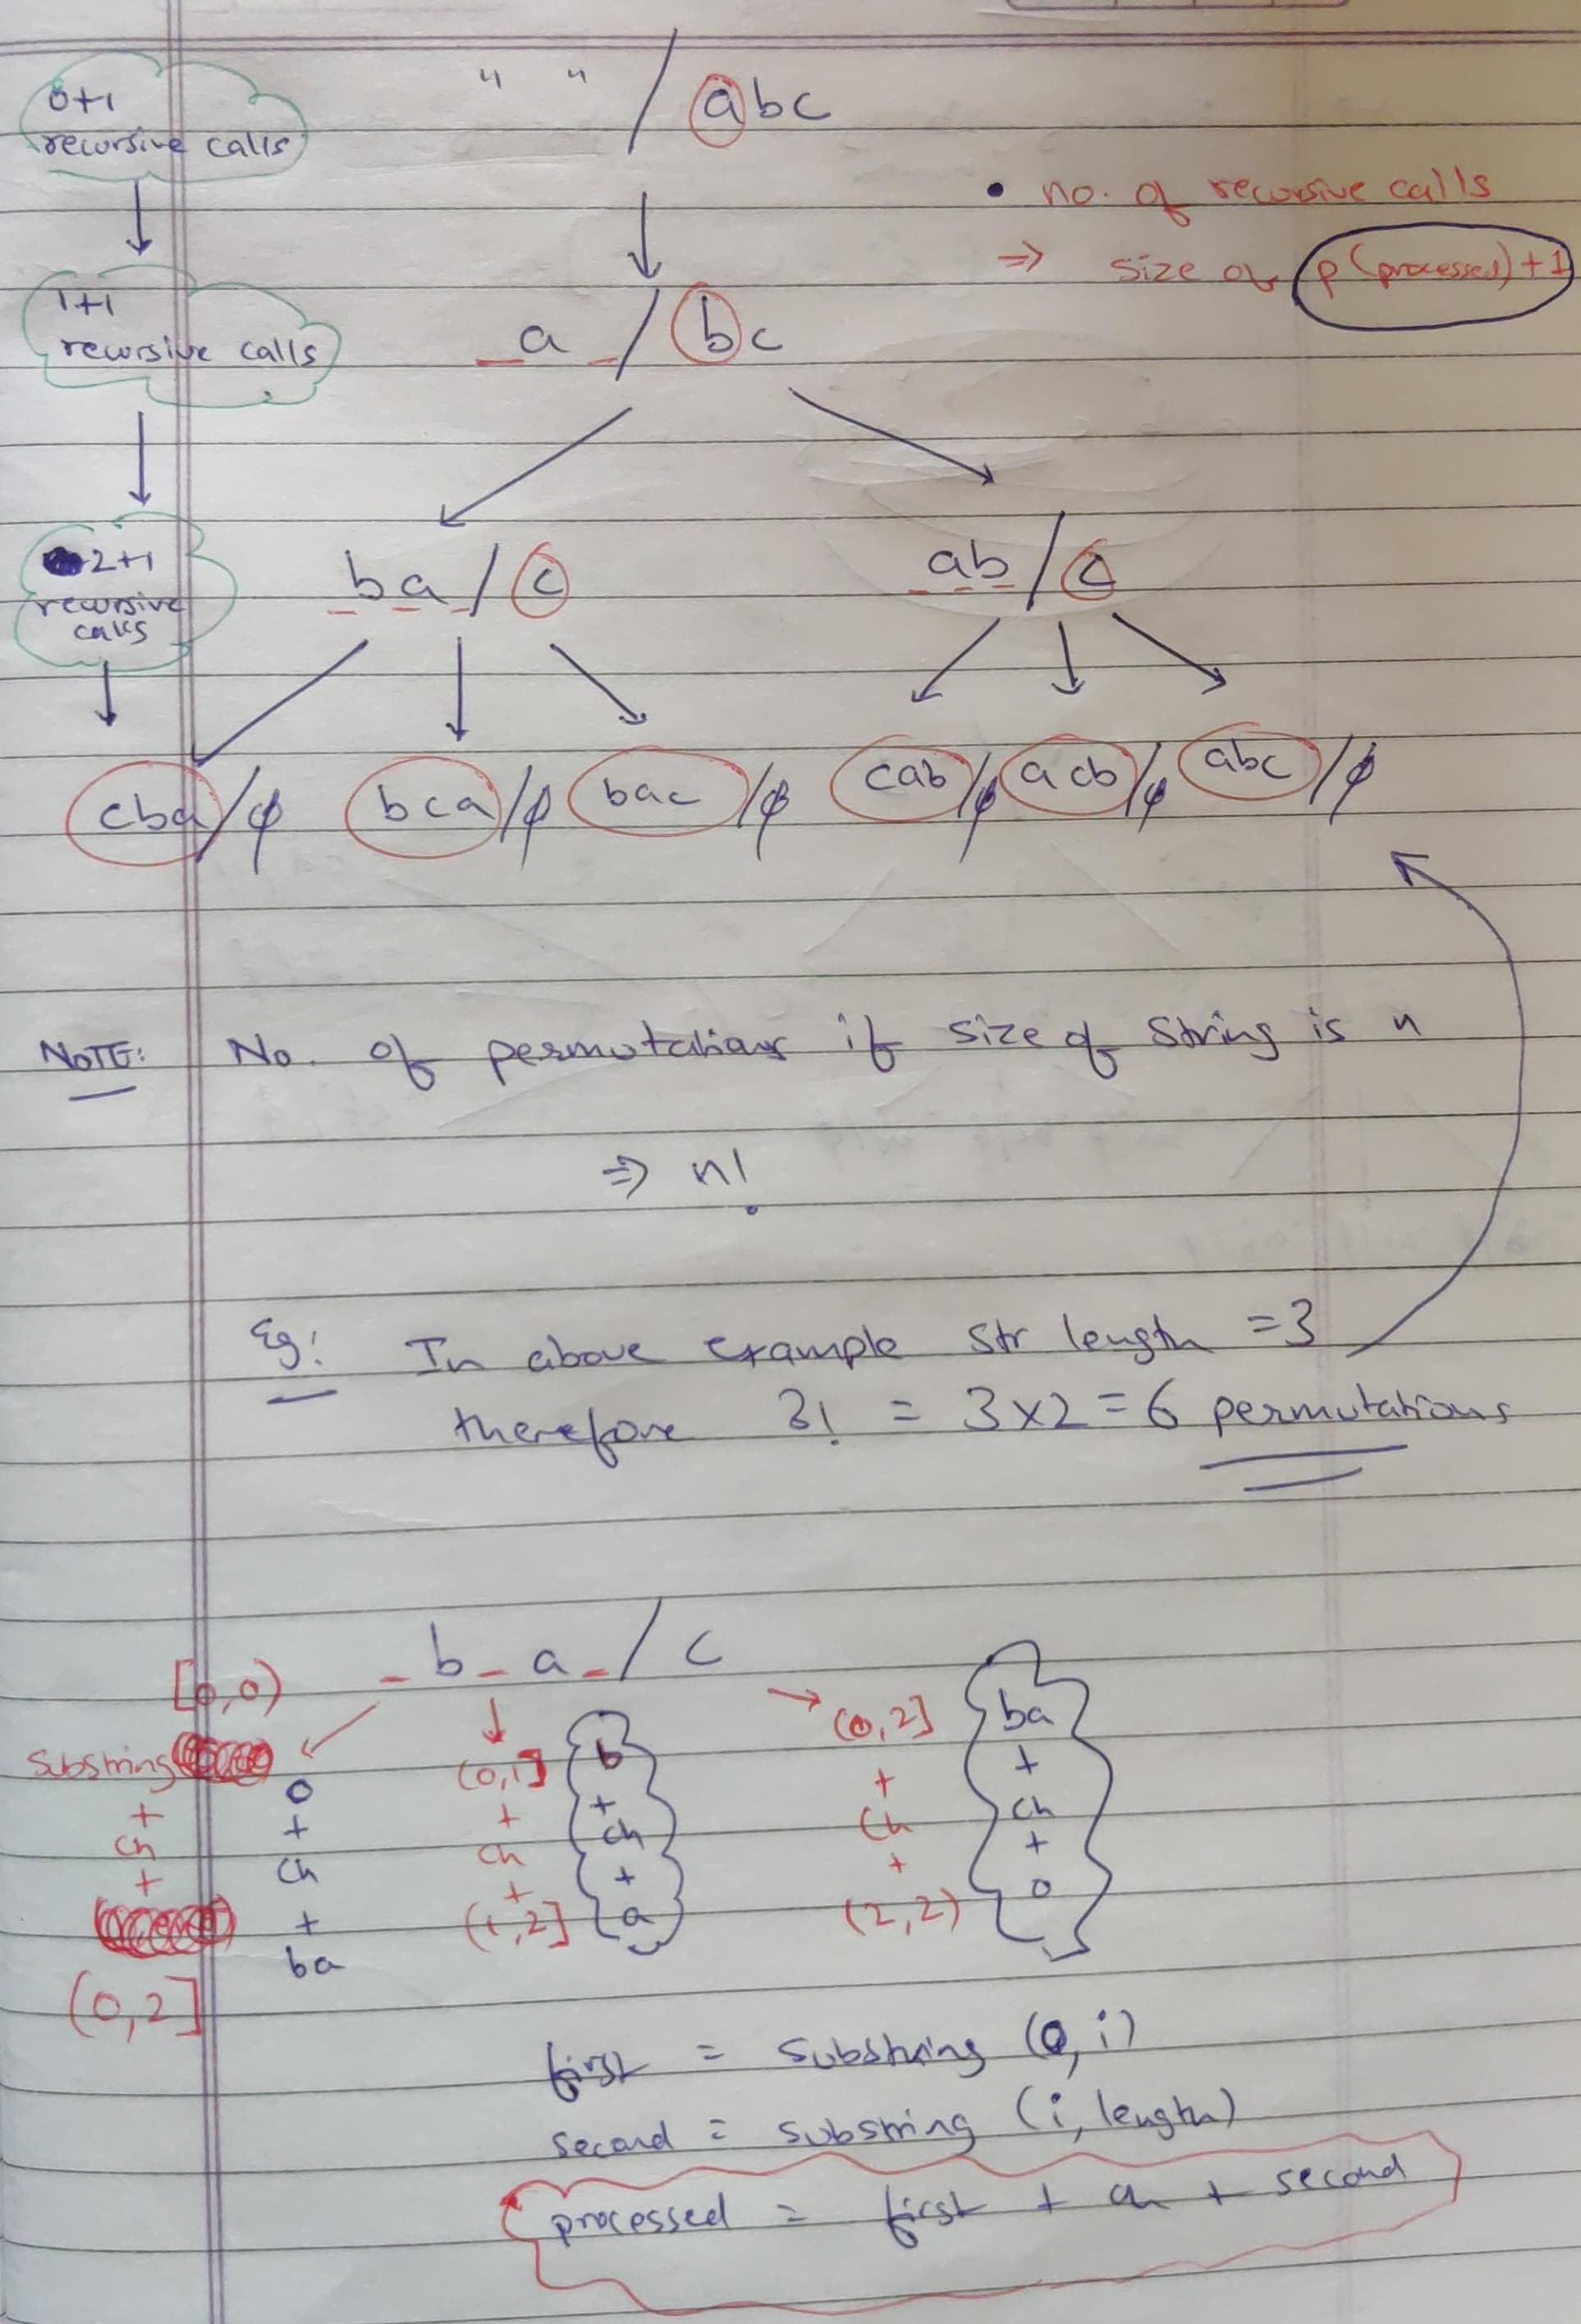 0+1
recursive calls
" " / abc
• no. of recursive calls
⇒ size of p(processed)+1
1+1
recursive calls
_a_/bc
2+1
recursive
calls
_b_a_/c
_a_b_/c
cba/φ bca/φ bac/φ cab/φ acb/φ abc/φ
NOTE: No. of permutations if size of string is n
⇒ n!
Eg: In above example str length = 3
therefore 3! = 3x2 = 6 permutations
_b_a_/c
[0,0)
Substring
+
ch
+
(0,2]
0
+
ch
+
ba
(0,1]
+
ch
+
(1,2]
b
+
ch
+
a
→ (0,2]
+
ch
+
(2,2)
ba
+
ch
+
0
first = substring (0, i)
second = substring (i, length)
processed = first + ch + second